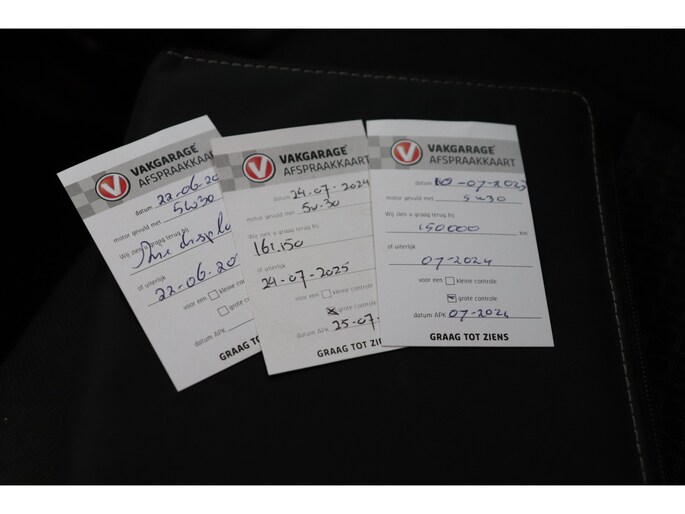 VAKGARAGE
AFSPRAAKKAART
datum 22-06-20
motor gevuld met 5W30
Wij zien u graag terug bij
of uiterlijk
22-06.20
voor een kleine controle
grote
datum APK
GRAAG TOT
VAKGARAGE
AFSPRAAKKAART
datum 24-07-2024
motor gevuld met 5W-30
Wij zien u graag terug bij
161.150
of uiterlijk
24-07-2025
voor een kleine controle
grote controle
datum APK 25-07-
GRAAG TOT ZIENS
VAKGARAGE
AFSPRAAKKAART
datum 10-07-2023
motor gevuld met 5W30
Wij zien u graag terug bij
150000 km
of uiterlijk
07-2024
voor een kleine controle
grote controle
datum APK 07-2024
GRAAG TOT ZIENS